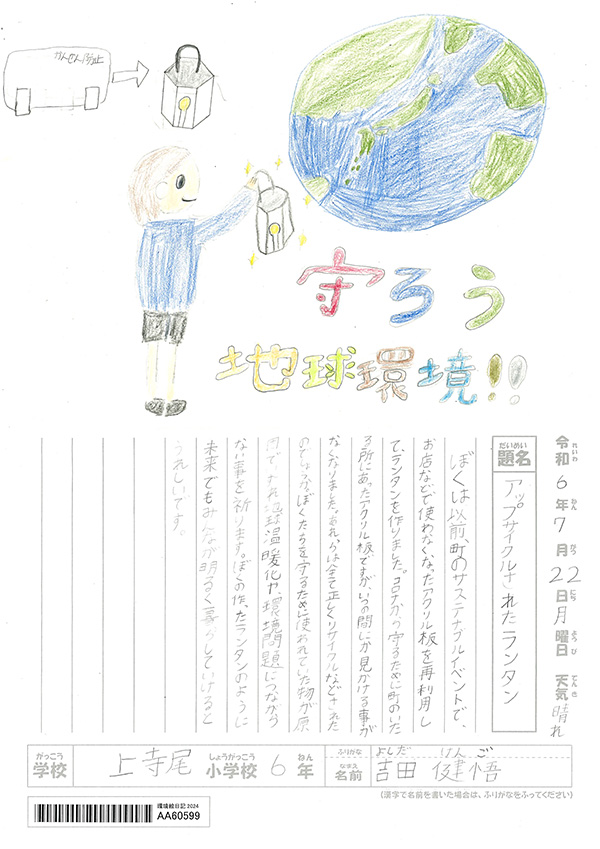 かんせん防止
守ろう
地球環境!!
令和6年7月22日月曜日 天気晴れ
れいわ ねん がつ にち ようび てんき
だいめい
題名
アップサイクルされたランタン
ぼくは以前、町のサステナブルイベントで、
お店などで使わなくなったアクリル板を再利用し
て、ランタンを作りました。コロナから守るために町のいた
る所にあったアクリル板ですが、いつの間にか見かける事が
なくなりました。あれらは全て正しくリサイクルなどされた
のでしょうか。ぼくたちを守るために使われていた物が原
因で、それが地球温暖化や、環境問題につながら
ない事を祈ります。ぼくの作ったランタンのように
未来でもみんなが明るく暮らしていけると
うれしいです。
がっこう しょうがっこう ねん
学校 上寺尾 小学校 6 年
ふりがな よしだ けんご
なまえ
名前 吉田 健悟
(漢字で名前を書いた場合は、ふりがなをふってください)
環境絵日記2024
AA60599